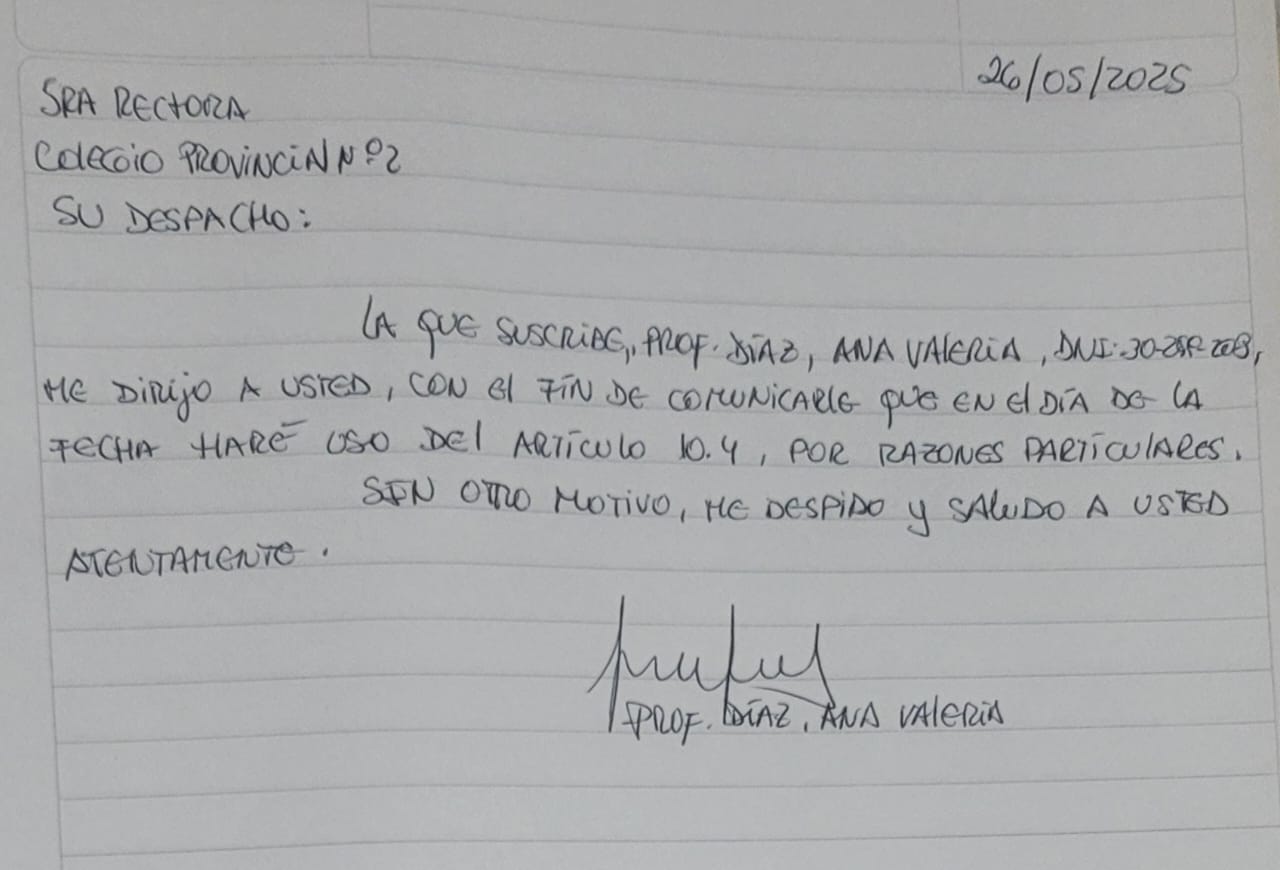 26/05/2025
SRA RECTORA
Colegio PROVINCIAL Nº2
SU DESPACHO:
LA QUE SUSCRIBE, PROF. DÍAZ, ANA VALERIA, DNI:
ME DIRIJO A USTED, CON El FIN DE COMUNICARLE QUE EN El DÍA DE LA
FECHA HARÉ USO DEl ARTÍCULO 10.4, POR RAZONES PARTICULARES.
SIN OTRO MOTIVO, ME DESPIDO Y SALUDO A USTED
ATENTAMENTE.
PROF. DÍAZ, ANA VALERIA